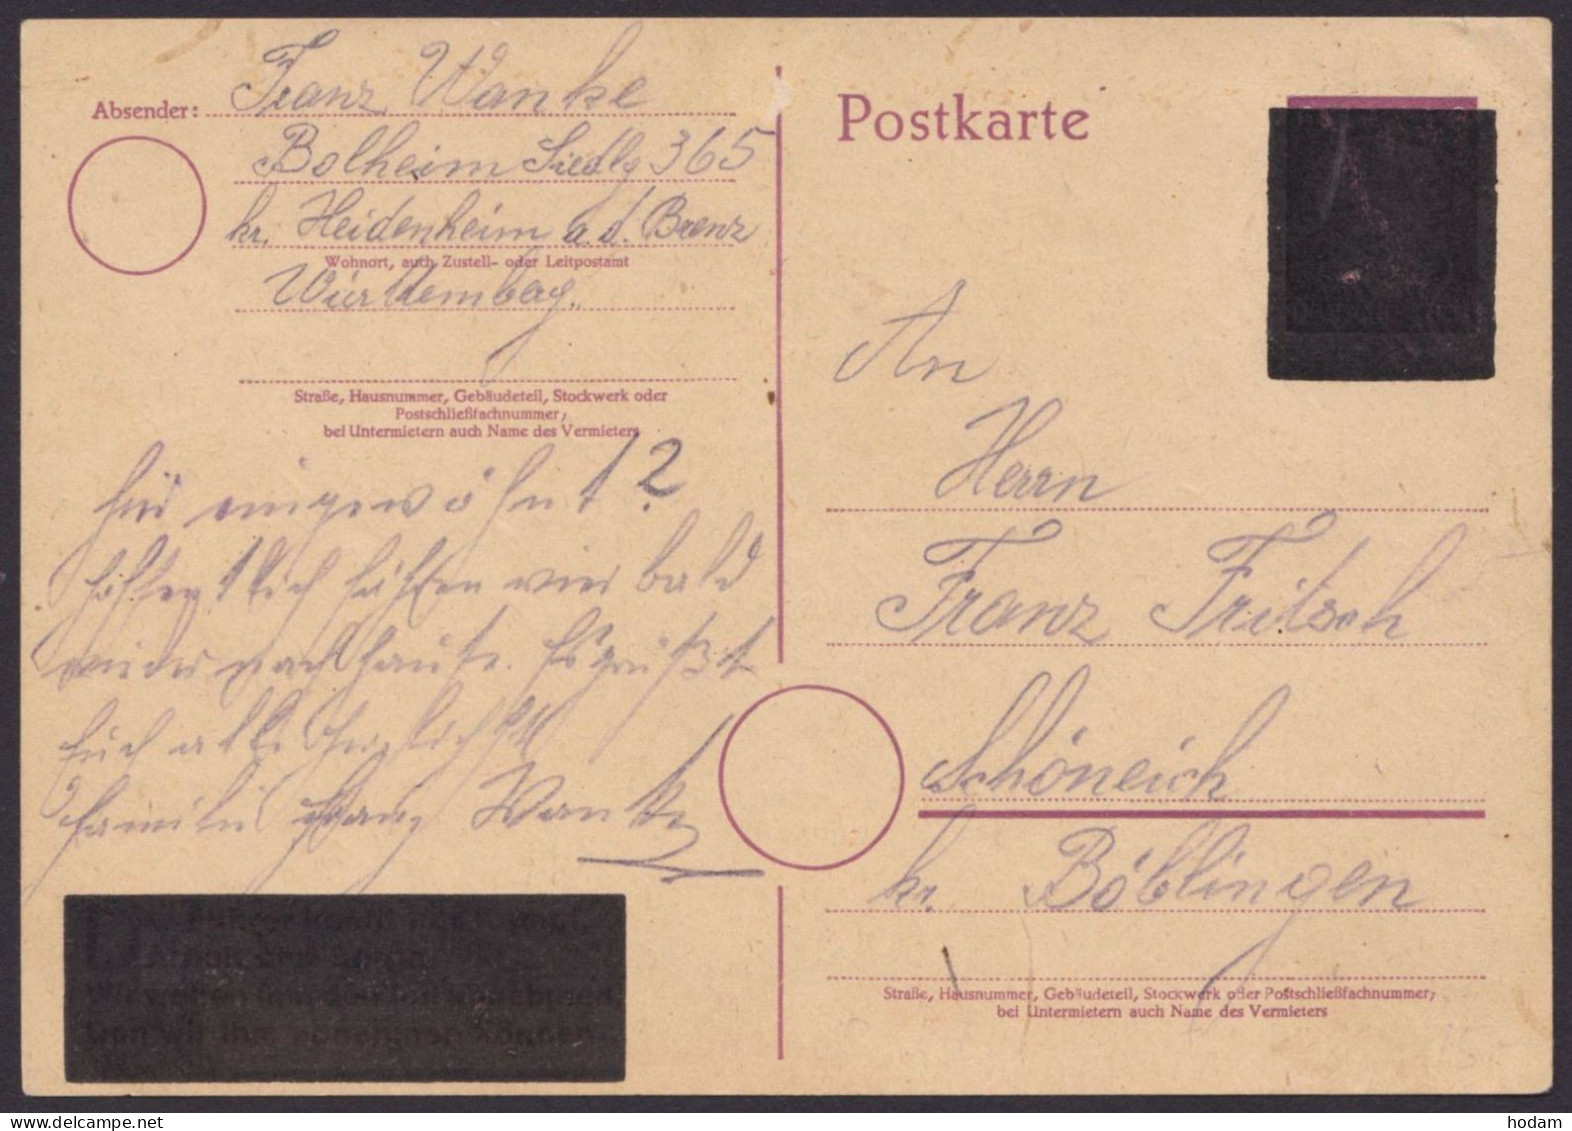 Absender: Franz Wanke
Bolheim Siedlg 365
kr. Heidenheim a.d. Brenz
Wohnort, auch Zustell- oder Leitpostamt
Württembg.
Straße, Hausnummer, Gebäudeteil, Stockwerk oder
Postschließfachnummer;
bei Untermietern auch Name des Vermieters
hier eingewöhnt?
hoffentlich fahren wir bald
wieder nach hause. Es grüßt
Euch alle herzlichst
Familie Franz Wanke
Postkarte
An
Herrn
Franz Fritsch
Schöneich
kr. Böblingen
Straße, Hausnummer, Gebäudeteil, Stockwerk oder Postschließfachnummer;
bei Untermietern auch Name des Vermieters
hodam